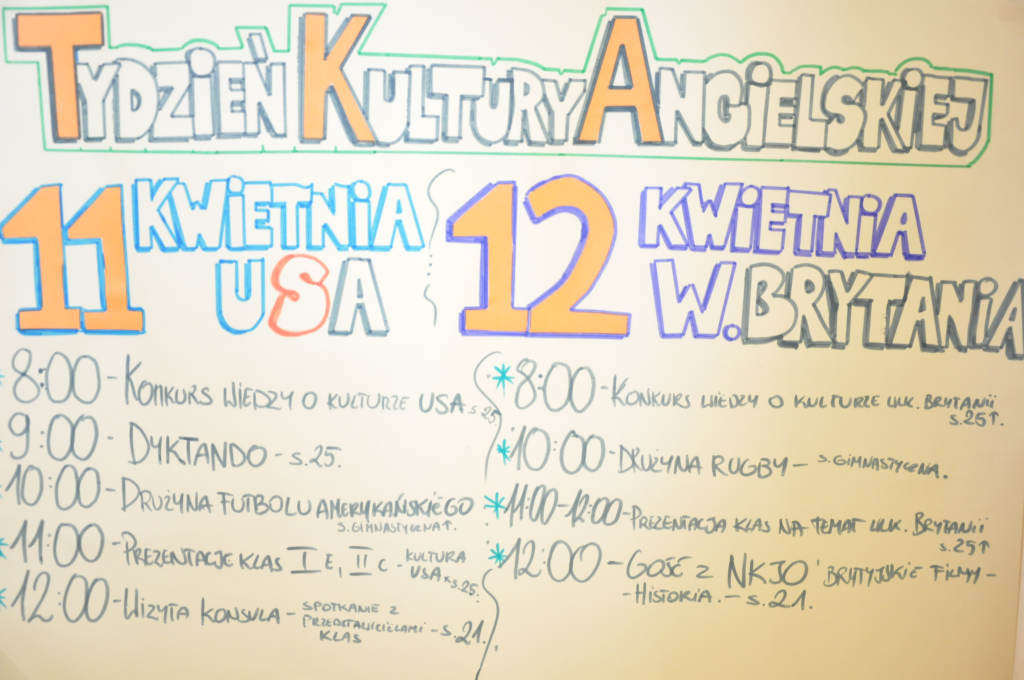 TYDZIEŃ KULTURY ANGIELSKIEJ
11 KWIETNIA
USA
8:00 - KONKURS WIEDZY O KULTURZE USA s.25
9:00 - DYKTANDO - s.25.
10:00 - DRUŻYNA FUTBOLU AMERYKAŃSKIEGO
s.GIMNASTYCZNA↑.
11:00 - PREZENTACJE KLAS I E, II C - KULTURA
USA s.25.
12:00 - WIZYTA KONSULA - SPOTKANIE Z
PRZEDSTAWICIELAMI - s.21.
KLAS
12 KWIETNIA
W. BRYTANIA
* 8:00 - KONKURS WIEDZY O KULTURZE WLK. BRYTANII
s.25↑.
* 10:00 - DRUŻYNA RUGBY - s.GIMNASTYCZNA.
* 11:00-12:00 - PREZENTACJA KLAS NA TEMAT WLK. BRYTANII
s.25↑
* 12:00 - GOŚĆ Z NKJO BRYTYJSKIE FILMY -
- HISTORIA. - s.21.